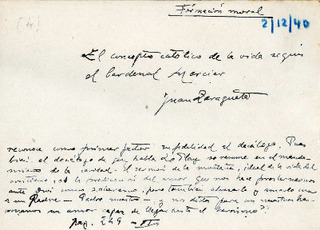 (4)
Formación moral
2/12/40
El concepto católico de la vida según
el Cardenal Mercier
Juan Zaragüeta
reconoce como primer factor su fidelidad al decálogo. Pues
bien: el decálogo de que habla Le Play se resume en el manda-
miento de la caridad. El sermón de la montaña, ideal de la vida del
cristiano, es la proclamación del amor que nos hace prosternarnos
ante Dios como soberano, pero también abrazarlo y amarlo como
a un Padre - Padre nuestro - y no dista para un nuestros ha-
un amor capaz de llegar hasta el heroísmo".
pag. 249 - II